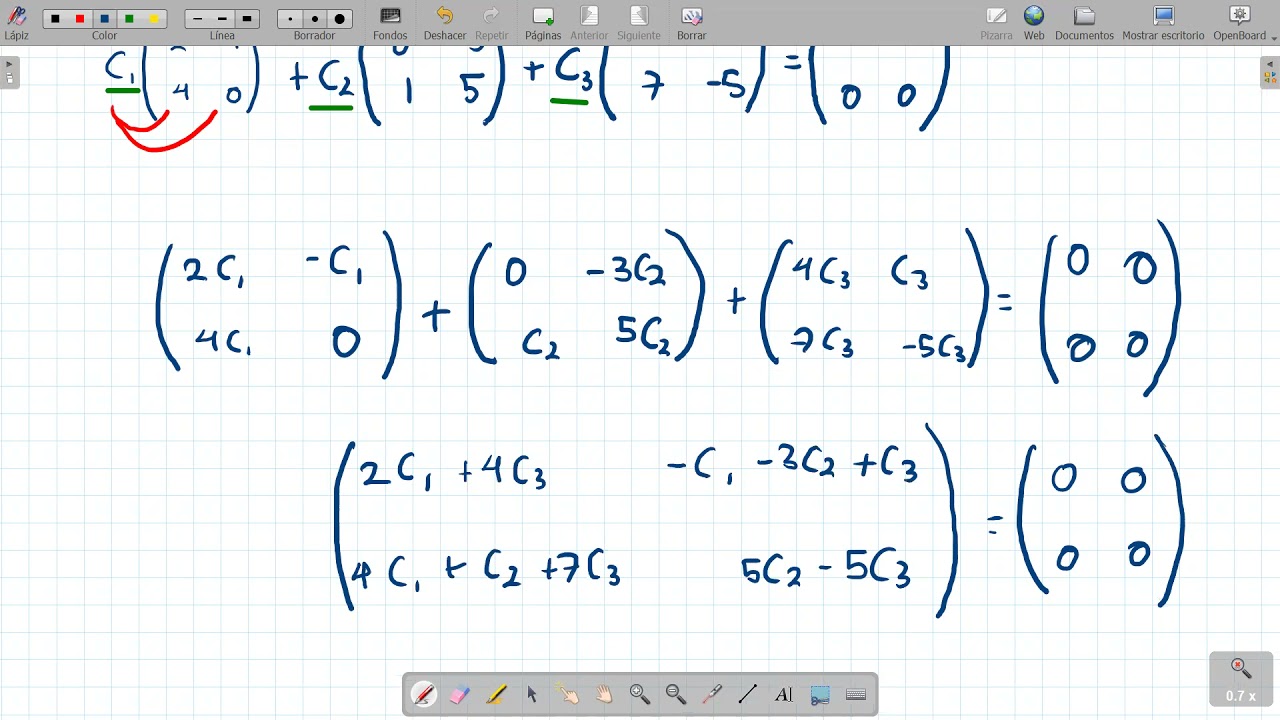 Lápiz Color Línea Borrador Fondos Deshacer Repetir Páginas Anterior Siguiente Borrar Pizarra Web Documentos Mostrar escritorio OpenBoard
C₁ ( 4 0 ) + C₂ ( 1 5 ) + C₃ ( 7 -5 ) = ( 0 0 )
( 2C₁ -C₁ ) + ( 0 -3C₂ ) + ( 4C₃ C₃ ) = ( 0 0 )
( 4C₁ 0 ) ( C₂ 5C₂ ) ( 7C₃ -5C₃ ) ( 0 0 )
( 2C₁ +4C₃ -C₁ -3C₂ +C₃ ) = ( 0 0 )
( 4C₁ + C₂ +7C₃ 5C₂ - 5C₃ ) ( 0 0 )
AI
0.7 x